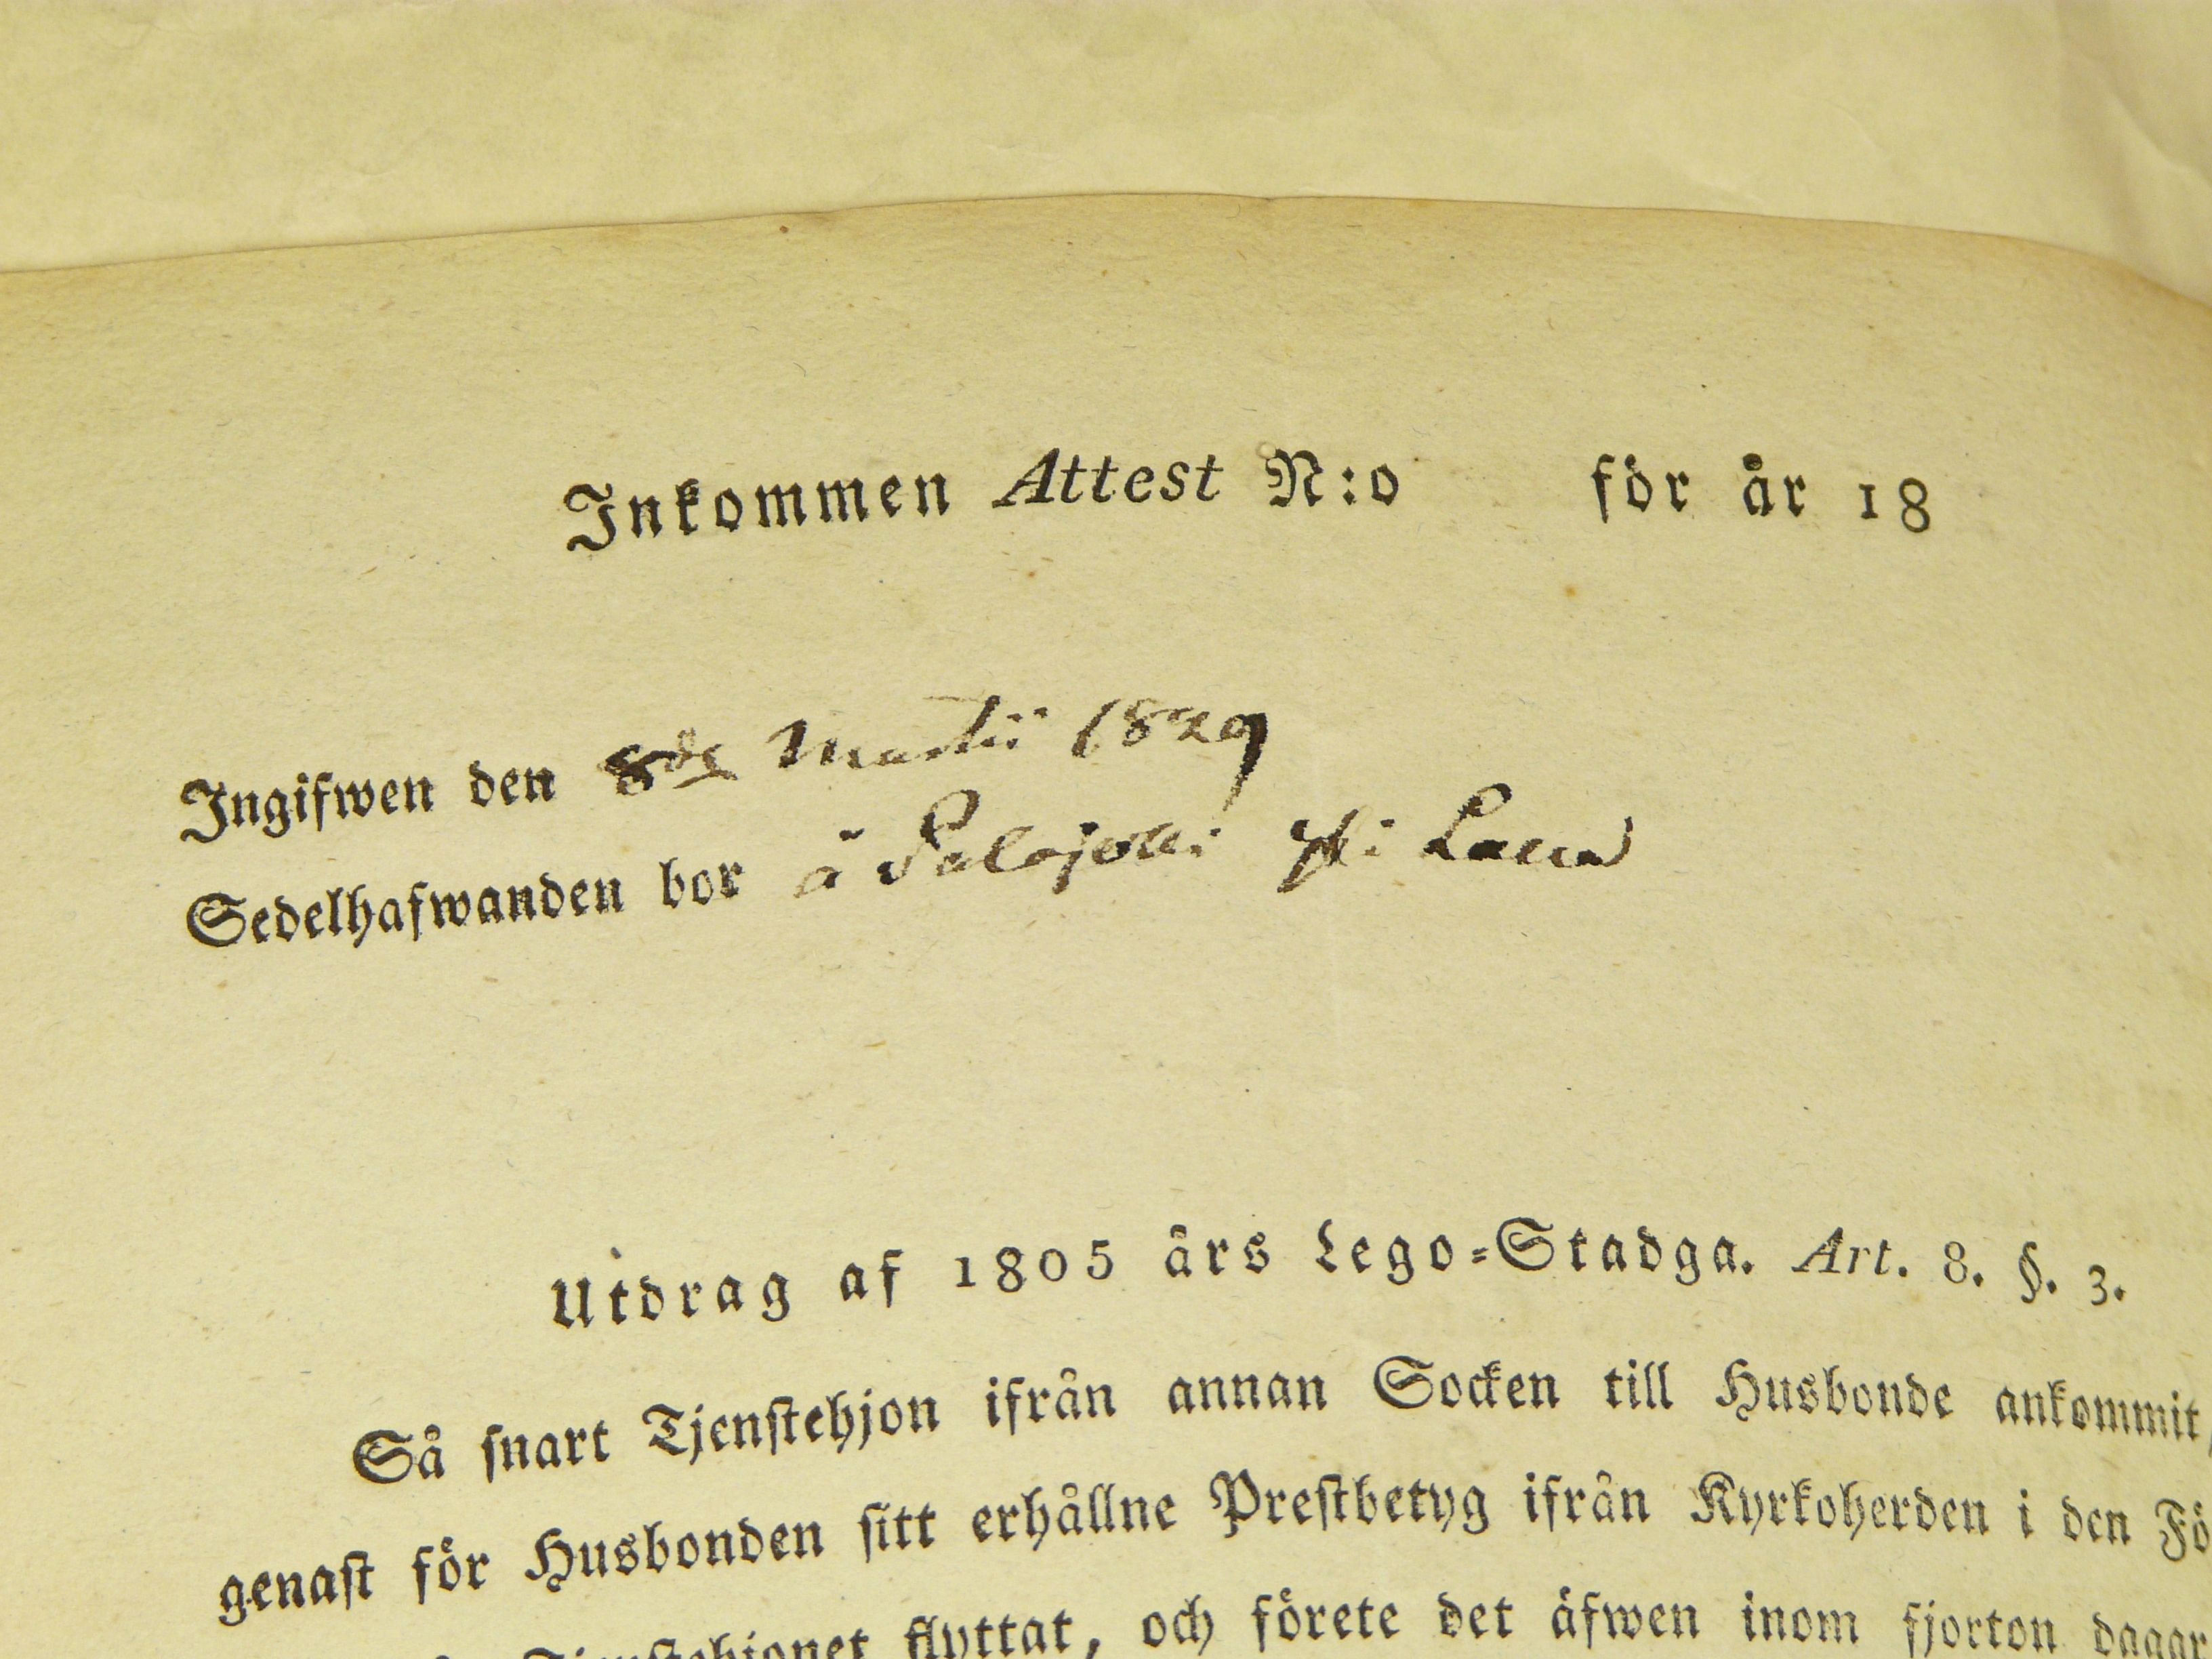 Inkommen Attest N:o för år 18
Ingifwen den 8de Martii 1829
Sedelhafwanden bor å Palojoki
Utdrag af 1805 års Lego-Stadga. Art. 8. §. 3.
Så snart Tjenstehjon ifrån annan Socken till Husbonde ankommit,
genast för Husbonden sitt erhållne Prestbetyg ifrån Kyrkoherden i den Fö
Tjenstehjonet flyttat, och förete det äfwen inom fjorton dagar